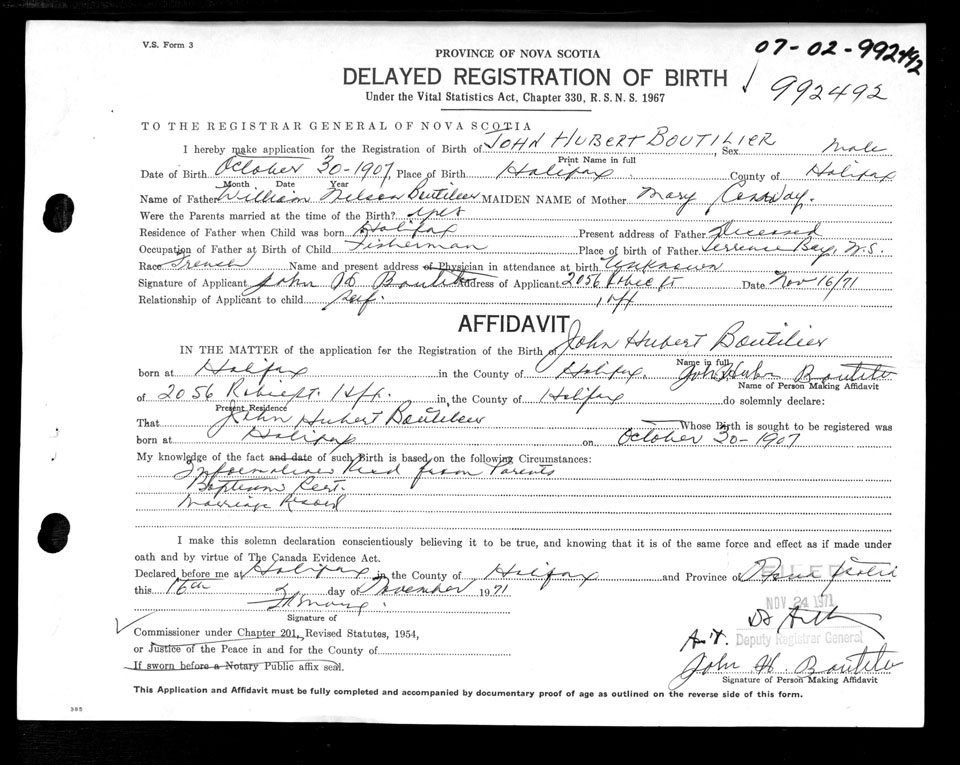 V.S. Form 3
07-02-992492
PROVINCE OF NOVA SCOTIA
DELAYED REGISTRATION OF BIRTH
992492
Under the Vital Statistics Act, Chapter 330, R.S.N.S. 1967
TO THE REGISTRAR GENERAL OF NOVA SCOTIA
I hereby make application for the Registration of Birth of JOHN HUBERT BOUTILIER, Sex Male
Print Name in full
Date of Birth October 30-1907, Place of Birth Halifax County of Halifax
Month Date Year
Name of Father William Nelson Boutilier MAIDEN NAME of Mother Mary Conway.
Were the Parents married at the time of the Birth? yes
Residence of Father when Child was born Halifax Present address of Father Deceased
Occupation of Father at Birth of Child Fisherman Place of birth of Father Terrence Bay, N.S.
Race French Name and present address of Physician in attendance at birth Unknown
Signature of Applicant John H Boutilier Address of Applicant 2056 Robie St Date Nov 16/71
Relationship of Applicant to child Self. Hfx
AFFIDAVIT
IN THE MATTER of the application for the Registration of the Birth of John Hubert Boutilier
Name in full
born at Halifax in the County of Halifax. John Hubert Boutilier
Name of Person Making Affidavit
of 2056 Robie St. Hfx. in the County of Halifax do solemnly declare:
Present Residence
That John Hubert Boutilier Whose Birth is sought to be registered was
born at Halifax on October 30-1907
My knowledge of the fact and date of such Birth is based on the following Circumstances:
Information Recd from Parents
Baptism Cert.
Marriage Record
I make this solemn declaration conscientiously believing it to be true, and knowing that it is of the same force and effect as if made under
oath and by virtue of The Canada Evidence Act.
Declared before me at Halifax in the County of Halifax and Province of Nova Scotia
FILED
this 16th day of November 1971
NOV 24 1971
Signature of
Commissioner under Chapter 201, Revised Statutes, 1954,
Deputy Registrar General
or Justice of the Peace in and for the County of
John H. Boutilier
If sworn before a Notary Public affix seal.
Signature of Person Making Affidavit
This Application and Affidavit must be fully completed and accompanied by documentary proof of age as outlined on the reverse side of this form.
385